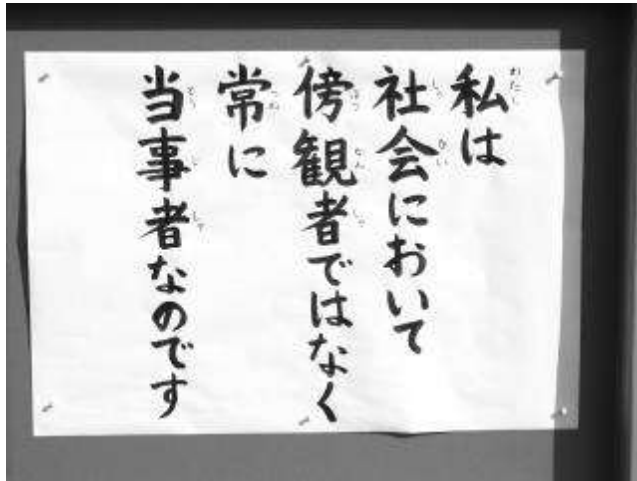 私は
社会において
傍観者ではなく
常に
当事者なのです